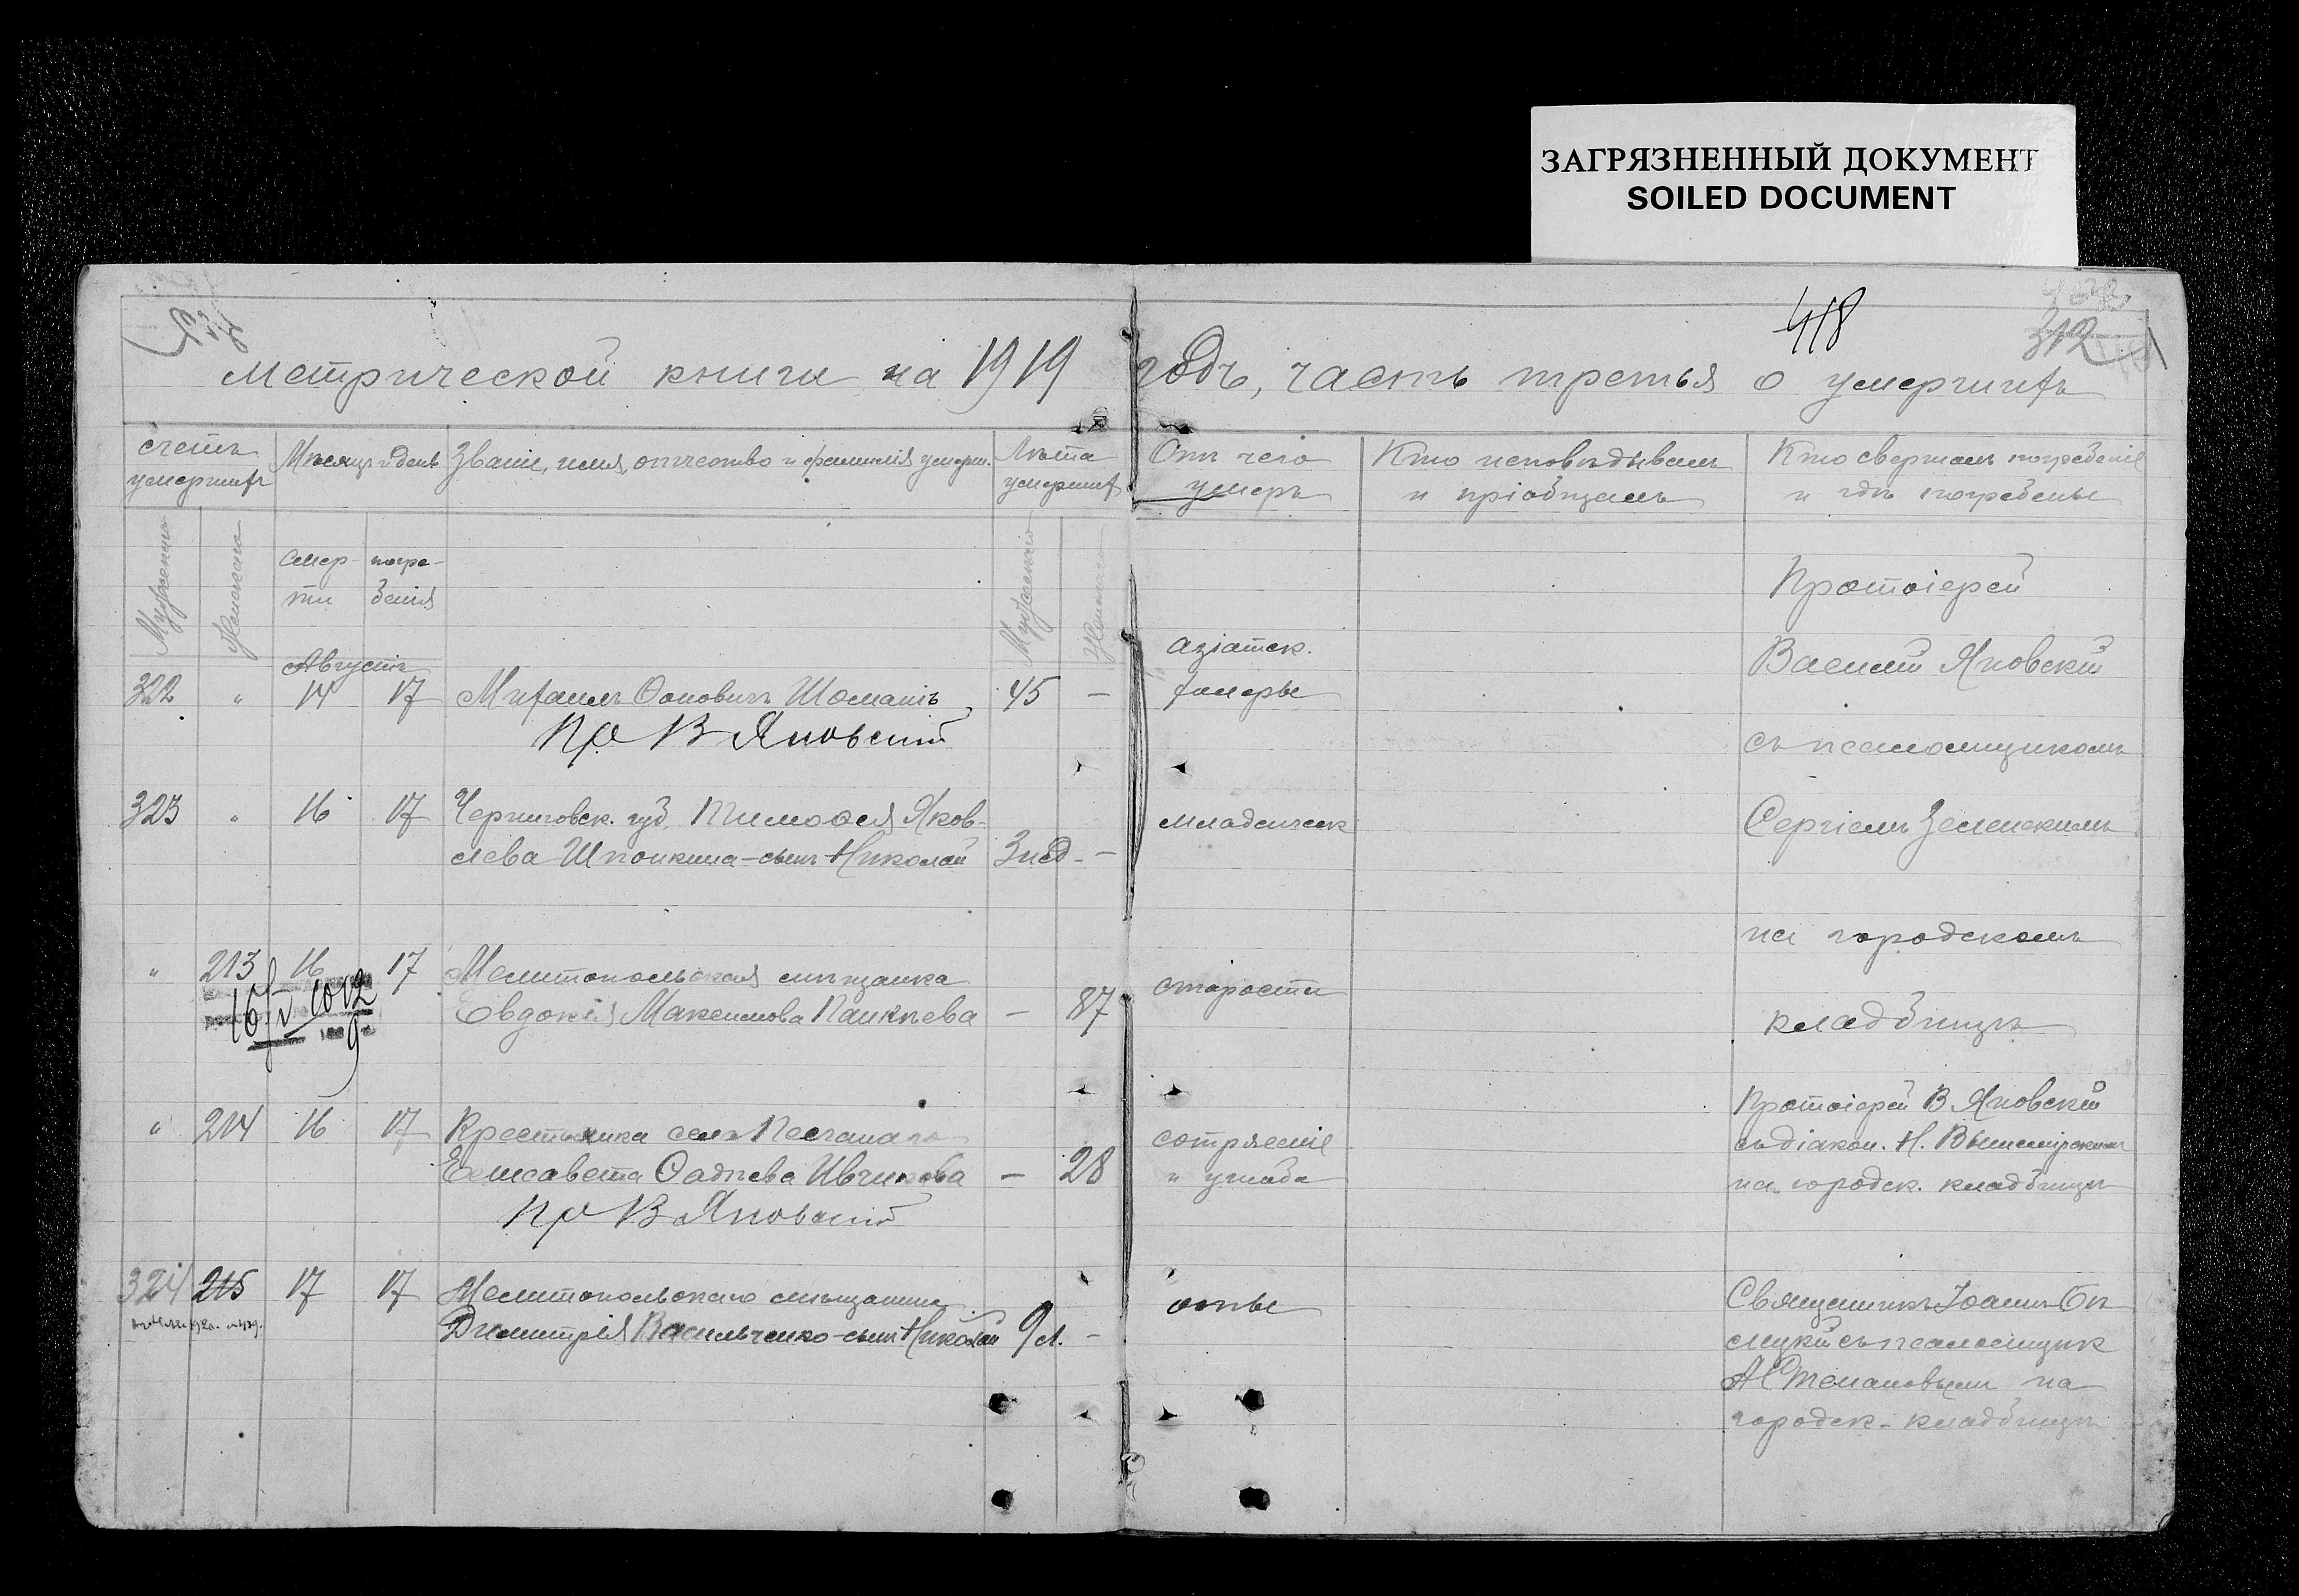 ЗАГРЯЗНЕННЫЙ ДОКУМЕНТ
SOILED DOCUMENT
418
312
Метрической книги на 1919 годъ, часть третья о умершихъ
счетъ умершихъ
Мѣсяцъ и день
Званіе, имя, отчество и фамилія умерш.
Лѣта умершихъ
Отъ чего умеръ
Кто исповѣдывалъ и пріобщалъ
Кто свершалъ погребеніе и гдѣ погребены
Мужескаго
Женскаго
смер-ти
погре-бенія
Мужескаго
Женскаго
Августъ
322 " 14 17 Михаилъ Ѳомовичъ Шоманъ 45 –
азіатск.
холеры
Пр В Яновскій
323 " 16 17 Черниговск. губ. Тимоѳея Яков-
лева Шпонкина – сынъ Николай 3 нед. –
младенческ
Протоіерей
Василій Яновскій
съ псаломщикомъ
Сергіемъ Зеленскимъ
на городскомъ
кладбищѣ
" 213 16 17 Мелитопольская мѣщанка
Евдокія Максимова Панкѣева – 87
старости
" 214 16 17 Крестьянка села Песчанаго
Елисавета Ѳадѣева Ивчикова – 28
сотрясеніе
и ушиба
Пр В Яновскій
Протоіерей В Яновскій
съ діакон. Н.
на городск. кладбищѣ
324 215 17 17 Мелитопольскаго мѣщанина
Димитрія Васильченко – сынъ Николай 9 л. –
Священникъ Іоаннъ
съ псаломщик
А Степановымъ на
городск. кладбищѣ